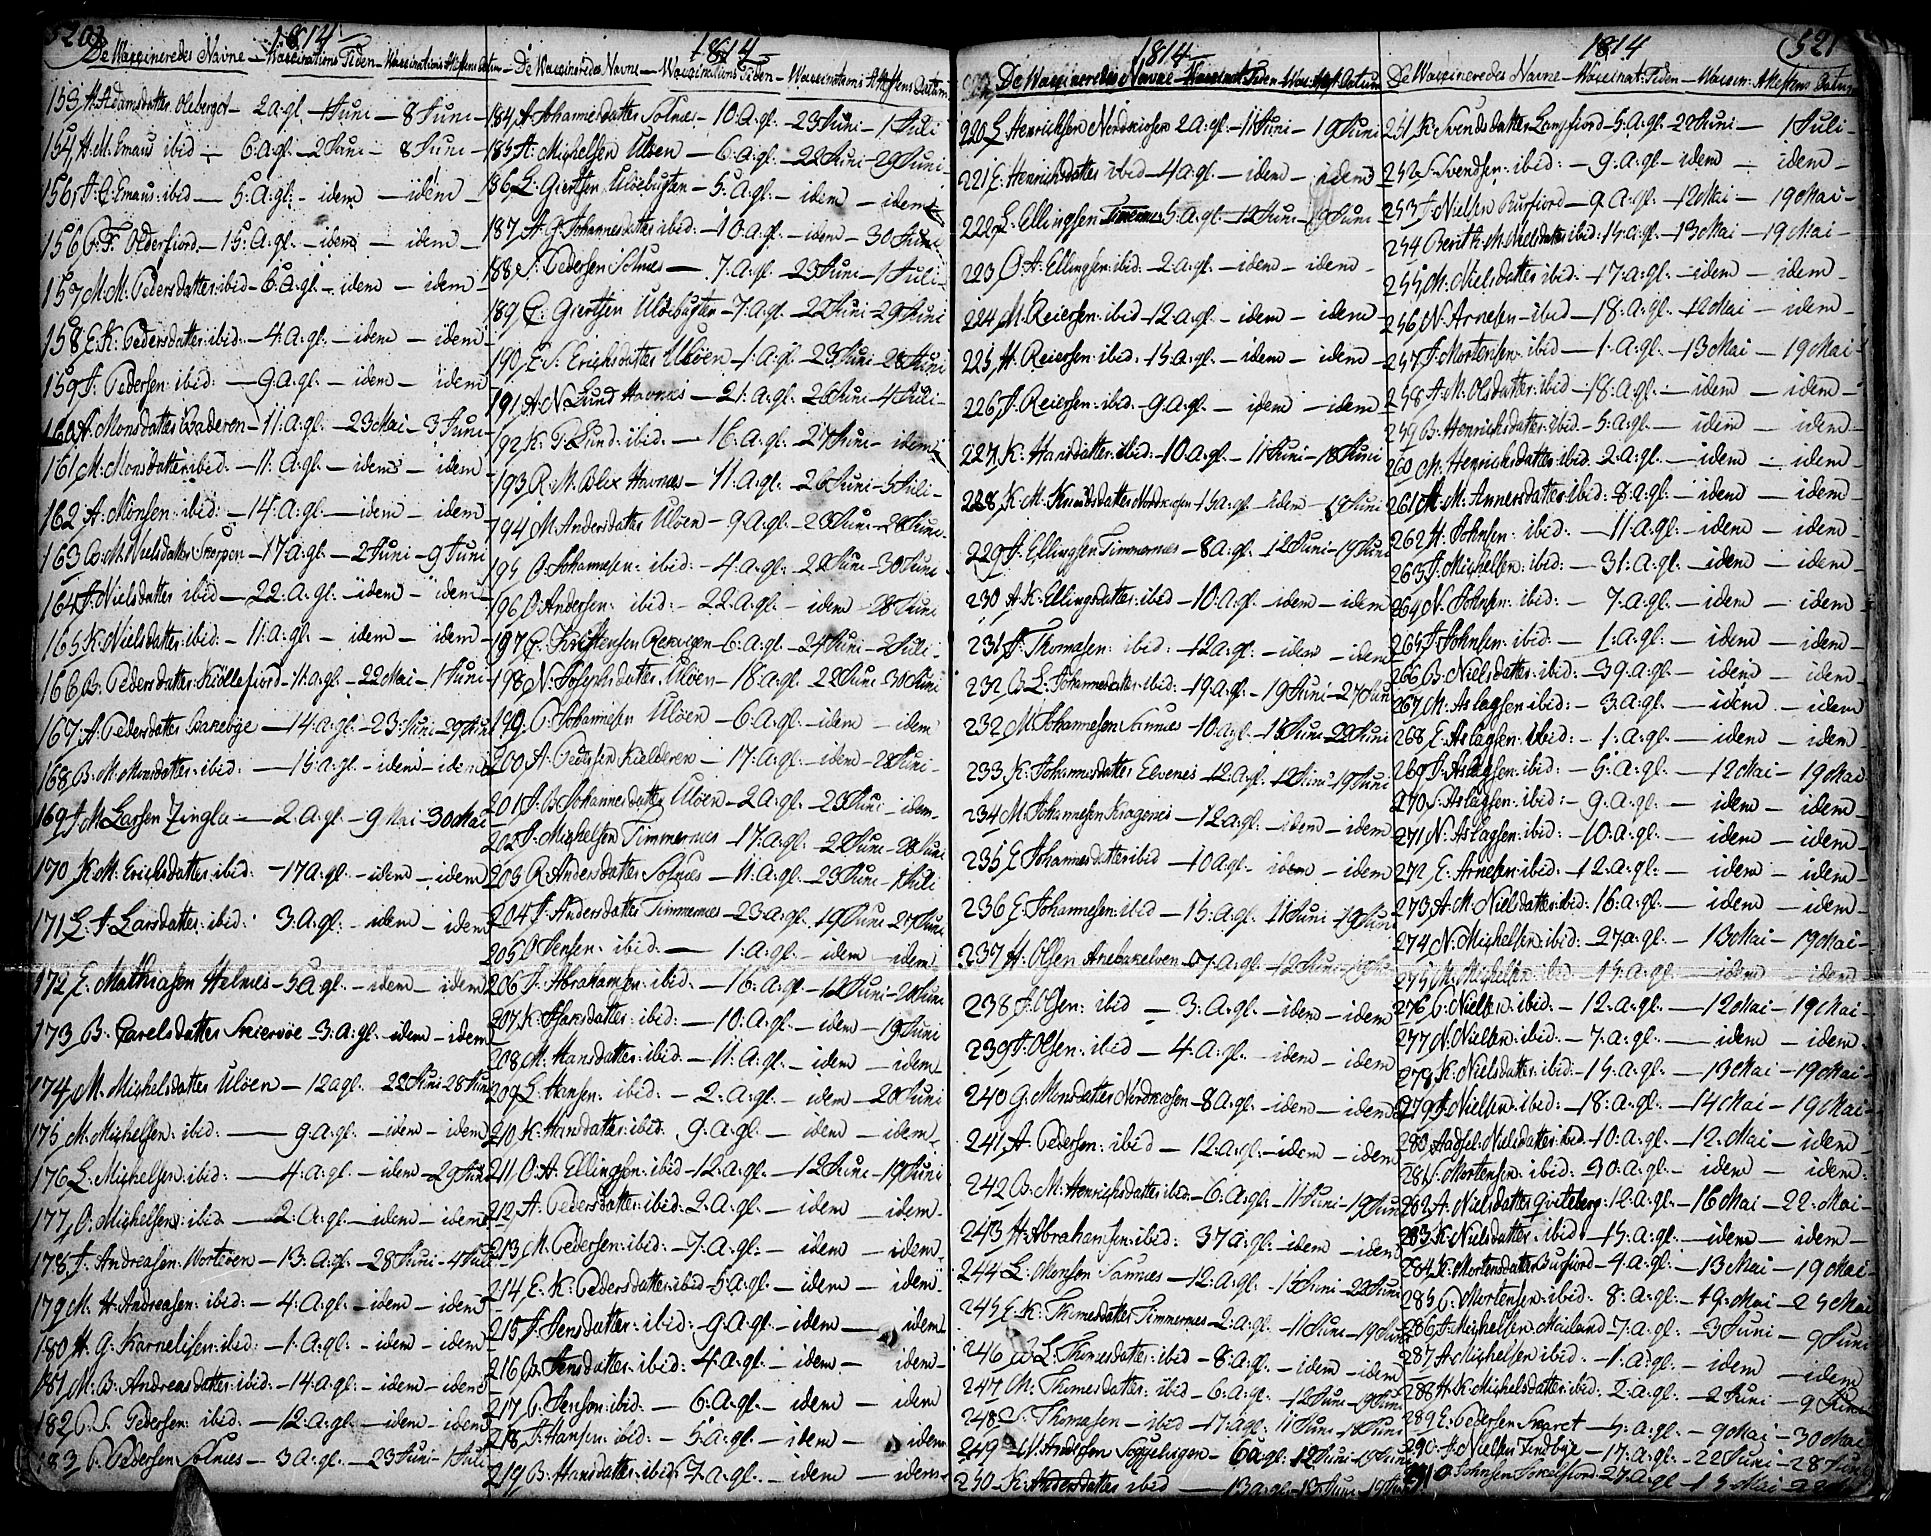 520
1814
De Waxineredes Navne – Waxinations Tiden – Waxinations Attestens Datum
153 A: Adamsdatter Olebergot – 2 a: gl. – Juni – 8 Juni
154 H. M. Emaus ibid – 6. a. gl. – 2 Juni – 8 Juni
155 J. C. Emaus: ibid – 5. a. gl. – idem – idem
156 P. F. Olderfiord – 15. a. gl. – idem – idem
157 M. M. Pedersdatter: ibid – 6. a. gl. – idem – idem
158 E. K. Pedersdatter: ibid: – 4. a. gl. – idem – idem
159 J: Pedersen: ibid: – 9. a. gl. – idem – idem
160 A: Monsdatter Baderen – 11. a. gl. – 23 Mai – 3 Juni
161 M: Monsdatter: ibid. – 11. a. gl. – idem – idem
162 A: Monsen: ibid: – 14. a. gl. – idem – idem
163 B. M. Nielsdatter Skorpen – 17 a. gl. – 2 Juni – 9 Juni
164 J: Nielsdatter ibid – 22. a. gl. – idem – idem
165 K: Nielsdatter: ibid. – 11. a. gl. – idem – idem
166 B. Pedersdatter Kiöllefiord – 11. a. gl. – 22 Mai – 1 Juni
167 A: Pedersdatter Bakebye – 14. a. gl. – 23. Juni – 29 Juni
168 B. M. Monsdatter: ibid: – 15. a. gl. – idem – idem
169 J M Larsen Zingla – 2. a. gl. – 9 Mai – 30 Mai
170 K. M. Erichsdatter: ibid: – 17 a. gl. – idem – idem
171 L. J. Larsdatter: ibid: 3. a. gl. – idem – idem
172 E: Mathiasen Helnes – 5 a. gl. – idem – idem
173 B. Carelsdatter Skiervöe – 3. a. gl. – idem – idem
174 M. Michelsdatter Ulöen – 12 a. gl. 22 Juni – 28 Juni
175 M. Michelsen: ibid: – 9. a. gl. – idem – idem
176 L. Michelsen: ibid: – 4. a. gl. – idem – 29 Juni
177 O: Michelsen: ibid – 2. a. gl. – idem – idem
178 J. Andreasen Vorteröen – 13. a. gl. – 28 Juni – 4 Juli
179 M. H. Andreasen: ibid: – 4. a. gl. – idem – idem
180 H. G: Karnelisen: ibid: – 1. a. gl. – idem – idem
181 M. B. Andreasdatter: ibid: – 14. a. gl. – idem – idem
182 P. S. Pedersen: ibid: – 12. a. gl. – idem – idem
183 P. Pedersen Solnes – 3 a. gl. – 23 Juni – 1 Juli
1814
De Waxineredes Navne – Waxinations Tiden – Waxinations Attestens Datum
184 A Johannesdatter Solnes – 10. a. gl. – 23 Juni – 1 Juli
185 A: Michelsen Ulöen – 6. a. gl. – 22 Juni – 29 Juni
186 L: Giertsen Ulöebugten – 5. a. gl. – idem – idem
187 A. G. Johannesdatter ibid: – 10. a. gl. – idem – 30 Juni
188 S: Pedersen Solnes – 7. a. gl. 23 Juni – 1 Juli
189 C: Giertsen Ulöebugten – 7. a. gl. – 22 Juni – 29 Juni
190 E. S. Erichsdatter Ulöen – 1. a. gl. 23 Juni – 28 Juni
191 A. N. Lund Havnes – 21. a. gl. 26 Juni – 4 Juli
192 K. P. Lund: ibid: – 16. a. gl. 27 Juni – idem
193 R. M. Blix Havnes – 11. a. gl. – 26 Juni – 5 Juli
194 M. Andersdatter Ulöen – 9. a. gl. – 20 Juni – 28 Juni
195 O Johannesen: ibid: – 4. a. gl. – 22 Juni – 30 Juni
196 O: Andersen: ibid: – 22. a. gl. – idem – 28 Juni
197 C. Kristensen Rekvigen – 6. a. gl. – 24 Juni – 2 Juli
198 N: Josephsdatter Ulöen – 18. a. gl. 22 Juni – 30 Juni
199 O. Johannesen Ulöen – 6. a. gl. – idem – idem
200 A. Pedersen Kielderen – 17. a. gl. – idem – 28 Juni
201 J. B. Johannesdatter Ulöen – 2. a. gl. – 23 Juni – idem
202 J. Michelsen Timmernes – 17. a. gl. – 20 Juni – 28 Juni
203 R: Andersdatter Solnes – 11. a. gl. – 23 Juni – 1 Juli
204 J: Andersdatter Timmernes – 23. a. gl. – 19 Juni – 27 Juni
205 O Jensen: ibid: – 1. a. gl. – idem – idem
206 J: Abrahamsen: ibid: – 16: a. gl. – 12 Juni – 20 Juni
207 K: Isaksdatter: ibid: – 10. a. gl. – idem – 19 Juni
208 M. Hansdatter: ibid: – 11. a. gl. – idem – idem
209 L. Hansen: ibid: – 2. a. gl. – idem – 20 Juni
210 K: Hansdatter: ibid: 9. a. gl. – idem – idem
211 O. A. Ellingsen: ibid – 12. a. gl. – 12 Juni – 19 Juni
212 A. Pedersdatter: ibid: 2. a. gl. – idem – idem
213 M. Pedersen: ibid: – 7. a. gl. – idem – idem
214 E. K. Pedersdatter: ibid – 5. a. gl. – idem – idem
215 J. Jensdatter: ibid: – 9. a. gl. – idem – idem
216 B: Jensdatter: ibid: 4. a. gl. – idem – idem
217 P. Jenson: ibid: – 6. a. gl. – idem – idem
218 J. Hansen: ibid: – 5. a. gl. – idem – idem
219 B: Hansdatter: ibid: 7. a. gl. – idem – idem
1814
De Waxineredes Navne – Waxinat: Tiden – Wax: Att: Datum
220 E. Henrichsen Nordkiosen 2 a. gl. – 11 Juni – 19 Juni
221 E: Henrichsdatter ibid – 4 a. gl. – idem – idem
222 L. Ellingsen Timernes 5. a. gl. – 12 Juni – 19 Juni
223 O A: Ellingsen: ibid. – 2. a. gl. – idem – idem
224 M. Reiersen: ibid – 12. a. gl. – idem – idem
225 H. Reiersen: ibid. – 15. a. gl. – idem – idem
226 J: Reiersen: ibid. – 9. a. gl. – idem – idem
227 K: Hansdatter: ibid. – 10. a. gl. – 11 Juni – 18 Juni
228 K. M. Knudsdatter Nordkiosen – 15 a. gl. – idem – 19 Juni
229 J: Ellingsen Timmernes – 8. a. gl. – 12 Juni – 19 Juni
230 A. K. Ellingsdatter: ibid – 10. a. gl. – idem – idem
231 J: Thomasen: ibid: – 12 a. gl. – idem – idem
232 B. L. Johannesdatter: ibid. – 19. a. gl. – 19 Juni – 27 Juni
232 M. Johannesen Sannes – 10. a. gl. – 15 Juni – 22 Juni
233 K. Johannesdatter Elvenes – 12. a. gl. – 12 Juni – 19 Juni
234 M. Johannesen Kragenes – 12. a. gl. – idem – idem
235 E Johannesdatter ibid – 10 a. gl. – idem – idem
236 E. Johannesen: ibid – 15. a. gl. – 11 Juni – 19 Juni
237 H. Olsen Anebakelven – 7. a. gl. – 12 Juni – 19 Juni
238 J: Olsen: ibid – 3. a. gl. – idem – idem
239 J. Olsen: ibid – 4. a. gl. – idem – idem
240 G. Monsdatter Nordkiosen – 8 a. gl. – idem – idem
241 A Pedersen: ibid – 12. a. gl. – idem – idem
242 B. M: Henrichsdatter: ibid: – 6. a. gl. – 11 Juni – 19 Juni
243 H: Abrahamsen: ibid: 37 a. gl. – idem – idem
244 L: Monsen Sannes – 12. a. gl. – 15 Juni – 22 Juni
245 E. K. Thomesdatter Timmernes – 2. a. gl. – 11 Juni – 19 Juni
246 B. L. Thomesdatter: ibid – 8. a. gl. – idem – idem
247 M: Thomesdatter: ibid – 6. a. gl. – 12 Juni – 19 Juni
248 S. Thomasen – ibid – 17. a. gl. 11 Juni – 18 Juni
249 W: Andersen Soppelvigen – 6 a. gl. 12 Juni – 19 Juni
250 K: Andersdatter ibid – 13 a. gl. – 13 Juni – 19 Juni
1814
521
De Waxineredes Navne – Waxinat: Tiden – Waxin: Attestens Datum
251 K: Svendsdatter Langfiord – 5. a. gl. 22 Juni – 1 Juli
252 S. Svendsen: ibid: – 9. a. gl. – idem – idem
253 J: Nielsen Burfiord – 9. a. gl. – 12 Mai – 19 Mai
254 Berith M. Nielsdatter: ibid: 15. a. gl. – 13 Mai – 19 Mai
255 M: Nielsdatter: ibid: – 17. a. gl. – idem – idem
256 N. Arnesen – ibid – 18. a. gl. – 12 Mai – idem
257 J: Mortensen: ibid – 1. a. gl. – 13 Mai – 19 Mai
258 A. M. Olsdatter: ibid – 18. a. gl. – idem – idem
259 B. Henrichsdatter: ibid – 5. a. gl. – idem – idem
260 M. Henrichsdatter: ibid. 2. a. gl. – idem – idem
261 A. M. Annersdatter: ibid: 8. a. gl. – idem – idem
262 H. Johnsen: ibid: – 11. a. gl. – idem – idem
263 J: Michelsen: ibid: – 31. a. gl. – idem – idem
264 N. Johnsen: ibid: – 7. a. gl. – idem – idem
265 J: Johnsen: ibid: – 1. a. gl. – idem – idem
266 B: Nielsdatter: ibid: – 39. a. gl. – idem – idem
267 M: Aslagsen: ibid: – 3. a. gl. – idem – idem
268 E: Aslagsen: ibid: – 1. a. gl. – idem – idem
269 J: Aslagsen: ibid: – 5. a. gl. – 12 Mai – 19 Mai
270 S. Aslagsen: ibid: – 9. a. gl. – idem – idem
271 N: Aslagsen: ibid: – 10. a. gl. – idem – idem
272 E: Arnesen: ibid: – 12. a. gl. – idem – idem
273 A. M. Nielsdatter: ibid: 16. a. gl. – idem – idem
274 N: Michelsen: ibid: – 27 a. gl. – 13 Mai – 19 Mai
275 M: Michelsen: ibid – 15. a. gl. – idem – idem
276 O: Nielsen: ibid: – 12. a. gl. – 12 Mai – 19 Mai
277 N: Nielsen: ibid: – 7. a. gl. – idem – idem
278 K: Nielsdatter: ibid: – 15. a. gl. – 13 Mai – 19 Mai
279 J: Nielsen: ibid: – 18. a. gl. – 14 Mai – 19 Mai
280 Aadsel: Nielsdatter: ibid – 10. a. gl. – 12. Mai – idem
281 Mortensen: ibid: 30. a. gl. – idem – idem
282 A: Nielsdatter Qviteberg – 12. a. gl. – 16 Mai – 22. Mai
283 K: Nielsdatter: ibid: – 15. a. gl. – idem – idem
284 K: Mortensdatter Burfiord – 4. a. gl. – 13 Mai – 19 Mai
285 P. Mortensen: ibid: 8. a. gl. – 19. Mai – 25 Mai
286 J: Michelsen Mailand – 7. a. gl. – 3 Juni – 9 Juni
287 A: Michelsen ibid: – 1. a. gl. – idem – idem
288 H. K. Michelsdatter: ibid: 2. a. gl. – 2 Juni – 9 Juni
289 E. Pedersen Skaret – 5. a. gl. – 9 Mai – 30 Mai
290 J: Nielsen Lindbye – 17. a. gl. – 22 Juni – 28 Juni
291 O Johnsen Sokelfiord – 27. a. gl. – 15 Mai – 22